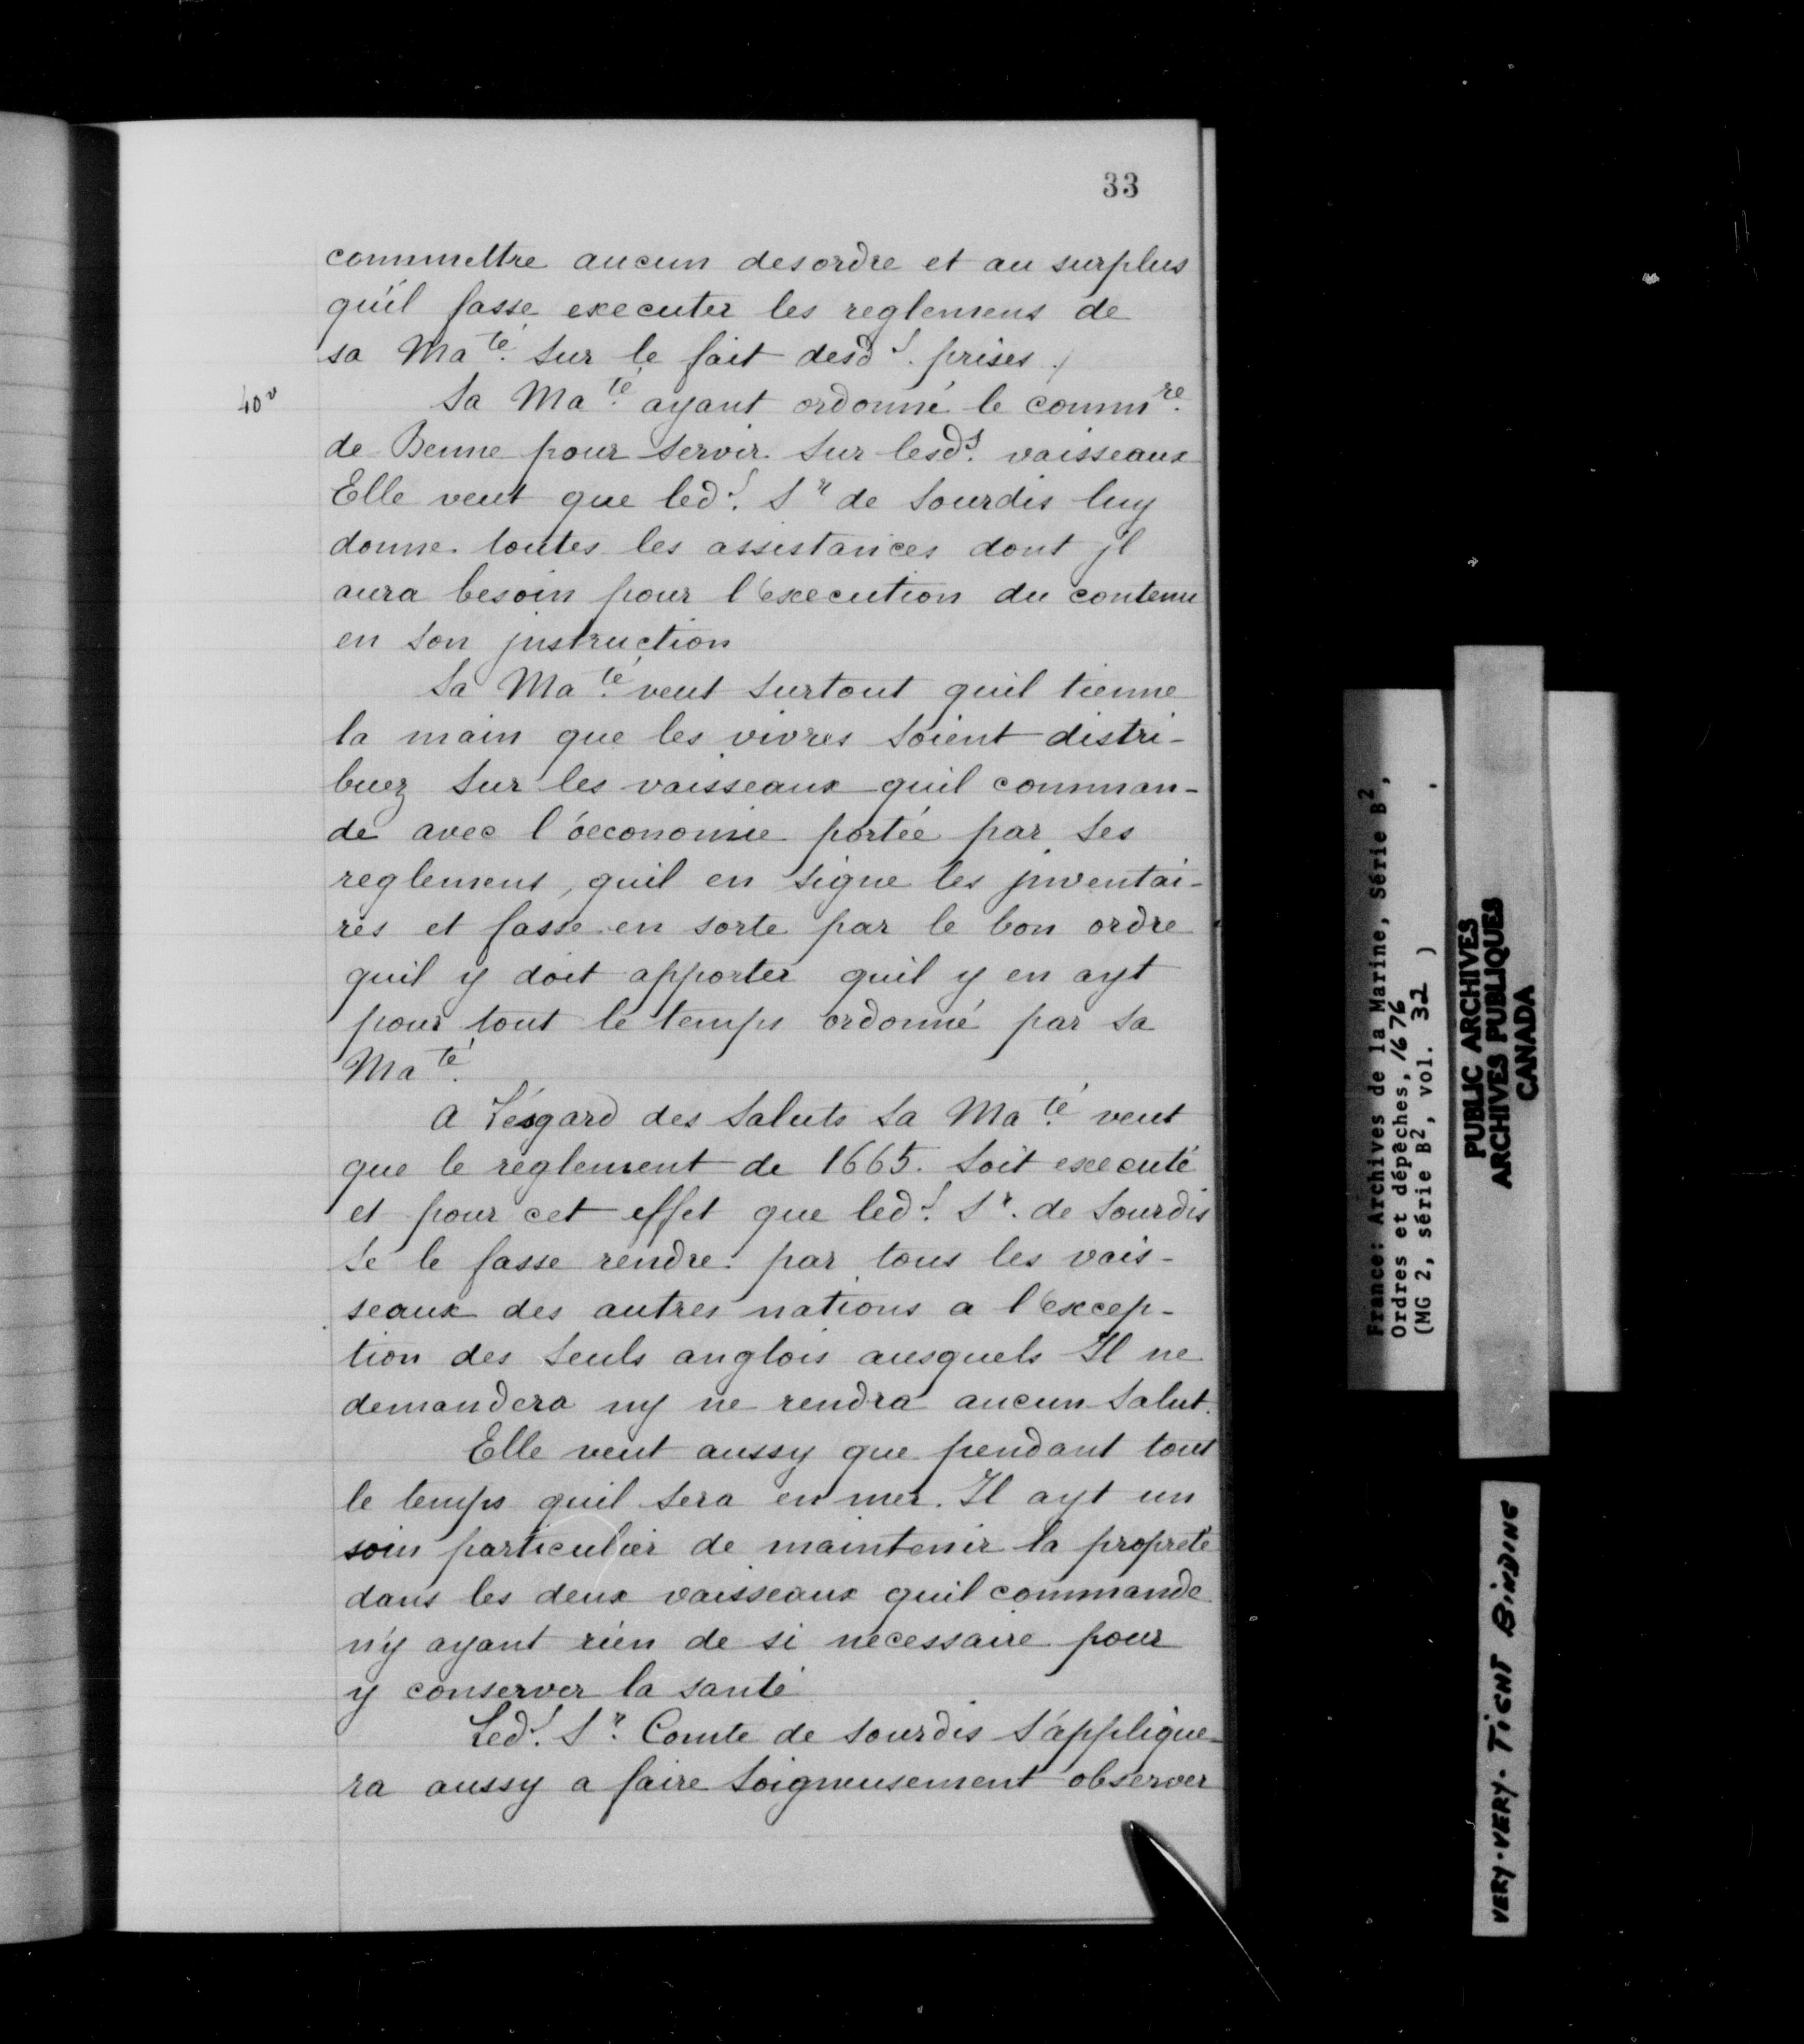 33
commettre aucun desordre et au surplus
qu'il fasse executer les reglemens de
sa Ma.té sur le fait desd.s prises./
40v
Sa Ma.té ayant ordonné le comm.re
de Benne pour servir sur lesd.s vaisseaux
Elle veut que led.s Sr de Sourdis luy
donne toutes les assistances dont jl
aura besoin pour l'execution du contenu
en son jnstruction
Sa Ma.té veut surtout quil tienne
la main que les vivres soient distri-
buez sur les vaisseaux quil comman-
de avec l'oeconomie portée par ses
reglemens, quil en signe les jnventai-
res et fasse en sorte par le bon ordre
quil y doit apporter quil y en ayt
pour tout le temps ordonné par sa
Ma.té
A l'ésgard des saluts sa Ma.té veut
que le reglement de 1665. soit executé
et pour cet effet que led.s Sr. de Sourdis
se le fasse rendre par tous les vais-
seaux des autres nations a l'excep-
tion des seuls anglois ausquels Il ne
demandera ny ne rendra aucun salut.
Elle veut aussy que pendant tout
le temps quil sera en mer. Il ayt un
soin particulier de maintenir la propreté
dans les deux vaisseaux quil commande
n'y ayant rien de si necessaire pour
y conserver la santé
Led.s Sr. Comte de Sourdis s'applique-
ra aussy a faire soigneusement observer
France: Archives de la Marine, Série B2,
Ordres et dépêches, 1676
(MG 2, série B2, vol. 32 )
PUBLIC ARCHIVES
ARCHIVES PUBLIQUES
CANADA
VERY·VERY· TIGHT BINDING